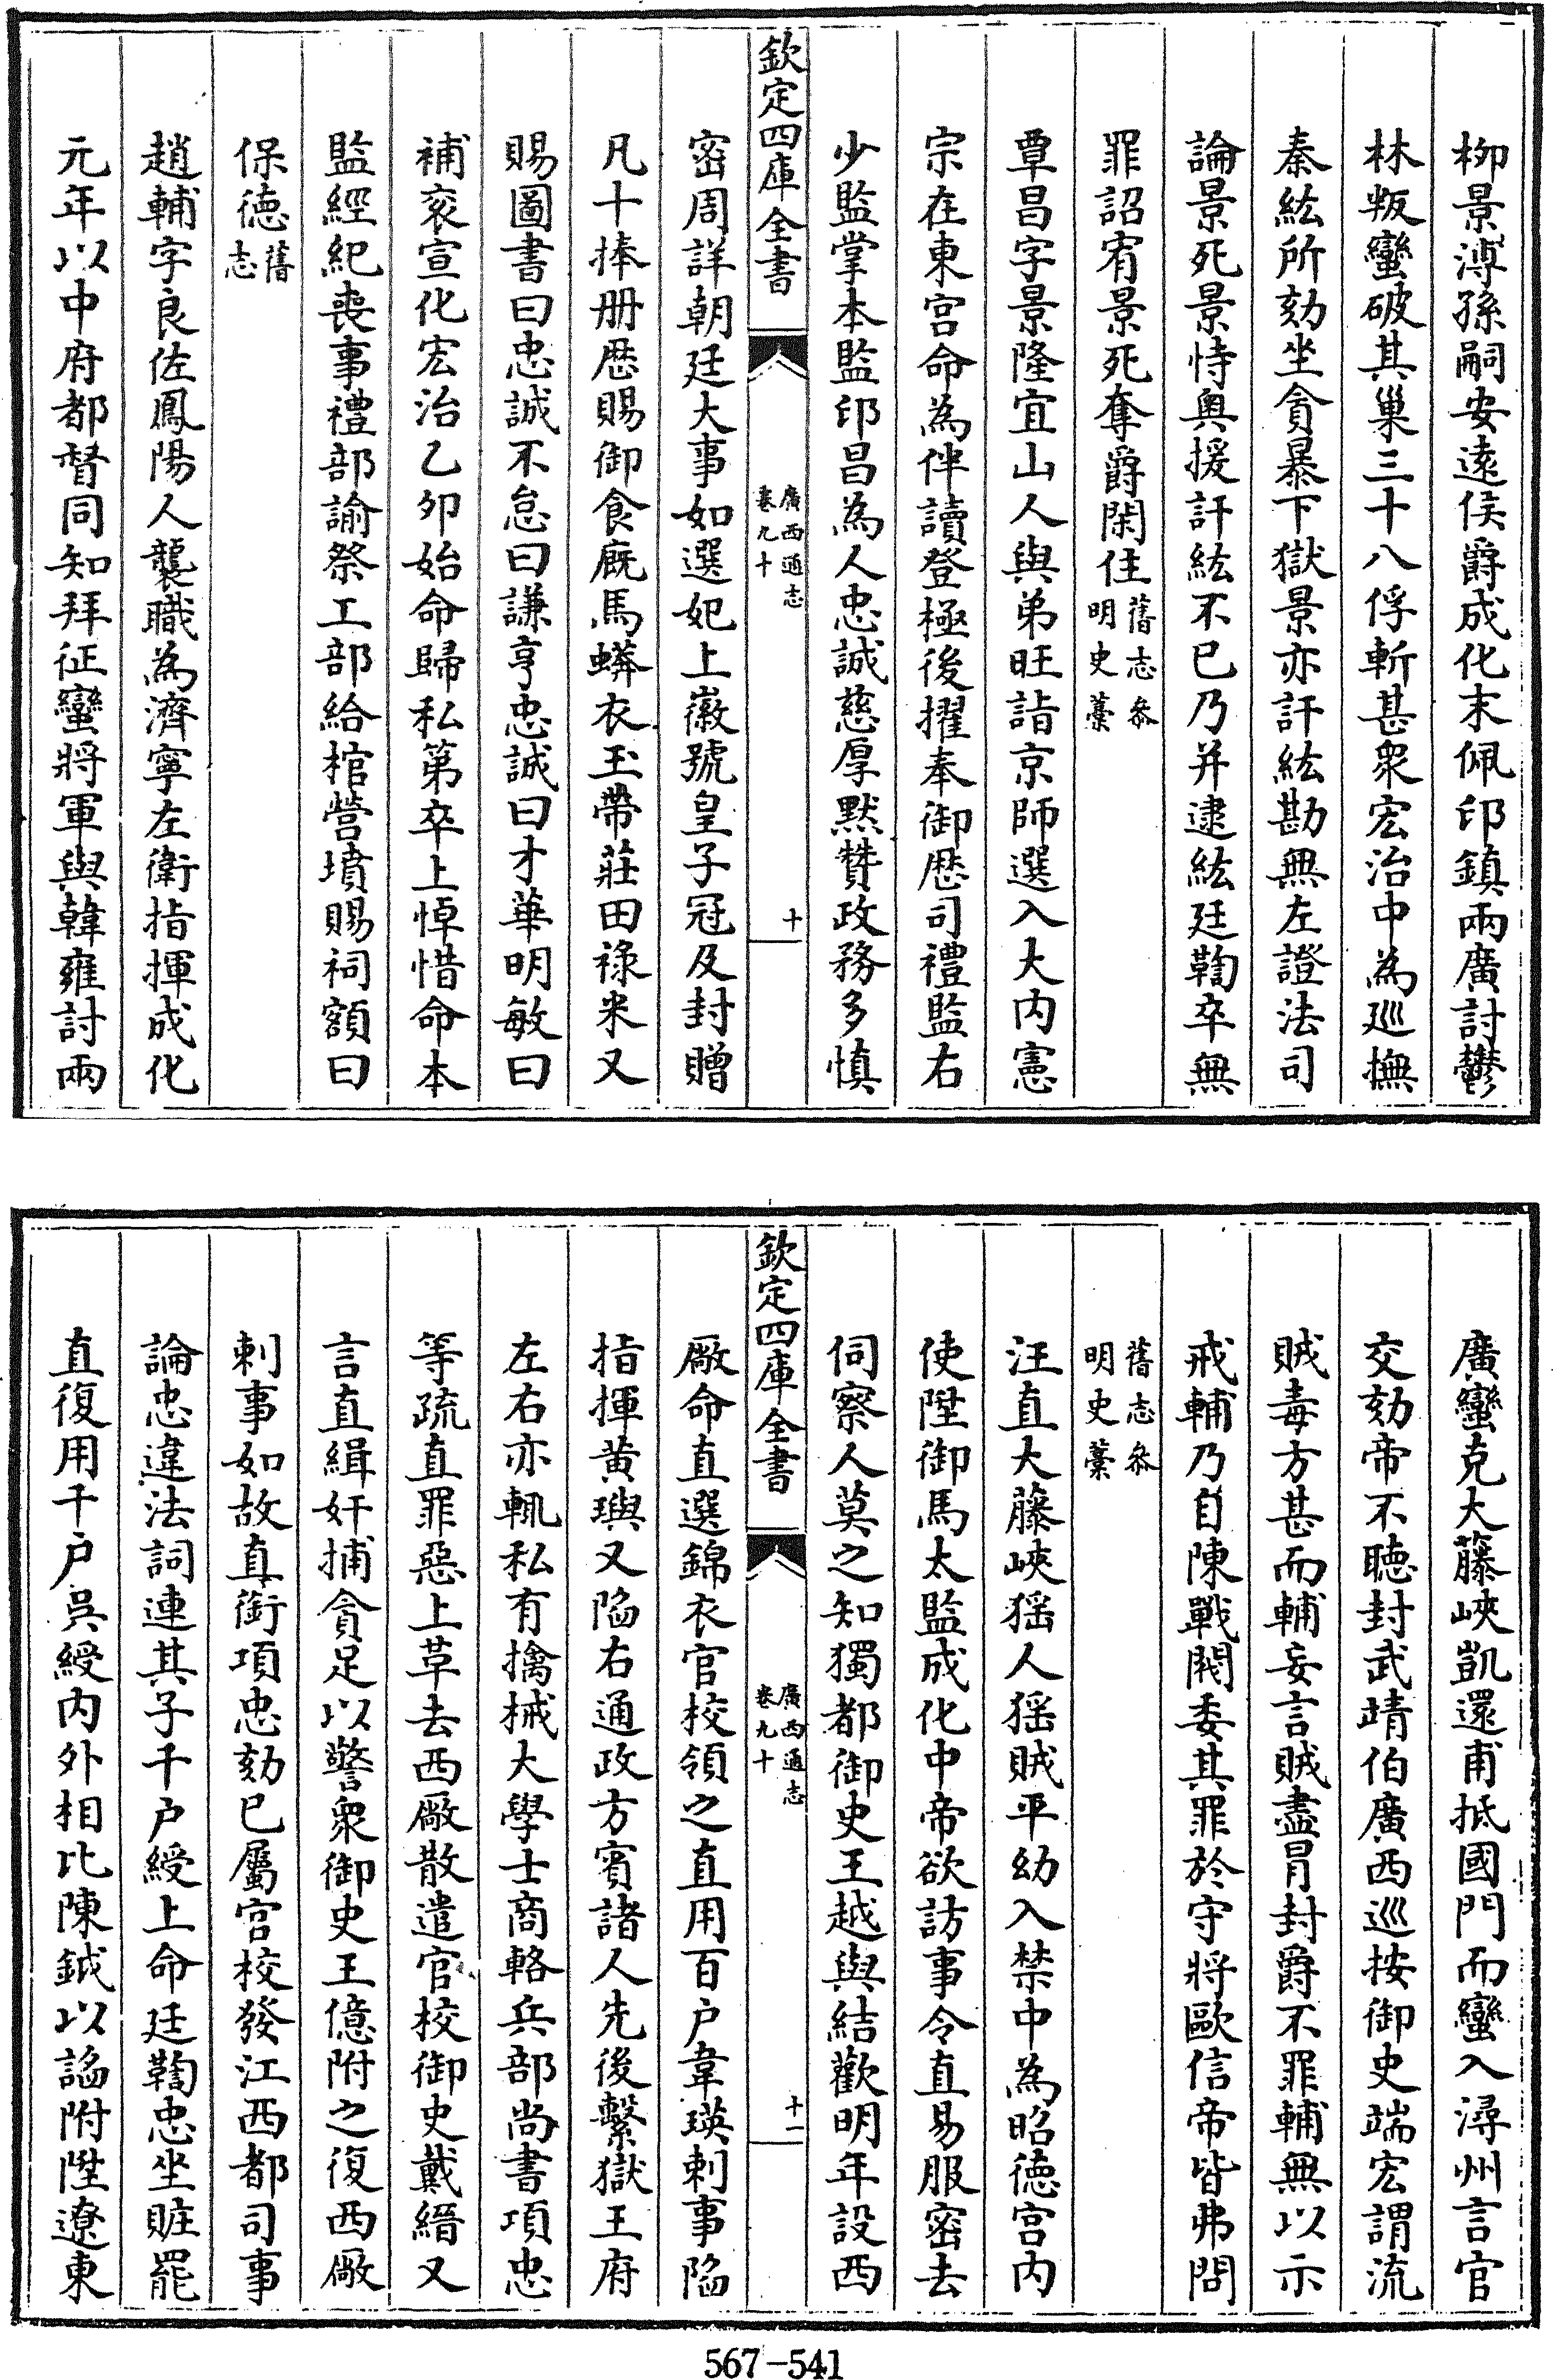 栁景溥孫嗣安遠侯爵成化末佩印鎮兩廣討鬱
林叛蠻破其巢三十八俘斬甚衆宏治中為廵撫
秦紘所劾坐貪暴下獄景亦訐紘勘無左證法司
論景死景恃奥援訐紘不已乃并逮紘廷鞫卒無
罪詔宥景死奪爵閑住舊志叅明史藁
覃昌字景隆宜山人與弟旺詣京師選入大内憲
宗在東宫命為伴讀登極後擢奉御歴司禮監右
少監掌本監印昌為人忠誠慈厚黙賛政務多慎
欽定四庫全書
廣西通志
卷九十
十
宻周詳朝廷大事如選妃上徽號皇子冠及封贈
凡十捧册歴賜御食廐馬蟒衣玉帶莊田祿米又
賜圖書曰忠誠不怠曰謙亨忠誠曰才華明敏曰
補衮宣化宏治乙夘始命歸私第卒上悼惜命本
監經紀喪事禮部諭祭工部給棺營墳賜祠額曰
保德舊志
趙輔字良佐鳳陽人襲職為濟寧左衛指揮成化
元年以中府都督同知拜征蠻將軍與韓雍討兩
廣蠻克大藤峽凱還甫抵國門而蠻入潯州言官
交劾帝不聴封武靖伯廣西巡按御史端宏謂流
賊毒方甚而輔妄言賊盡冐封爵不罪輔無以示
戒輔乃自陳戰閥委其罪於守將歐信帝皆弗問
舊志叅明史藁
汪直大藤峽猺人猺賊平幼入禁中為昭德宫内
使陞御馬太監成化中帝欲訪事令直易服宻去
伺察人莫之知獨都御史王越與結歡明年設西
欽定四庫全書
廣西通志
卷九十
十一
厰命直選錦衣官校領之直用百户韋瑛刺事陷
指揮黄璵又陷右通政方賓諸人先後繫獄王府
左右亦輒私有擒械大學士商輅兵部尚書項忠
等疏直罪惡上草去西厰散遣官校御史戴縉又
言直緝奸捕貪足以警衆御史王億附之復西厰
刺事如故直銜項忠劾已屬官校發江西都司事
論忠違法詞連其子千户綬上命廷鞫忠坐賍罷
直復用千户呉綬内外相比陳鉞以謟附陞遼東
567-541